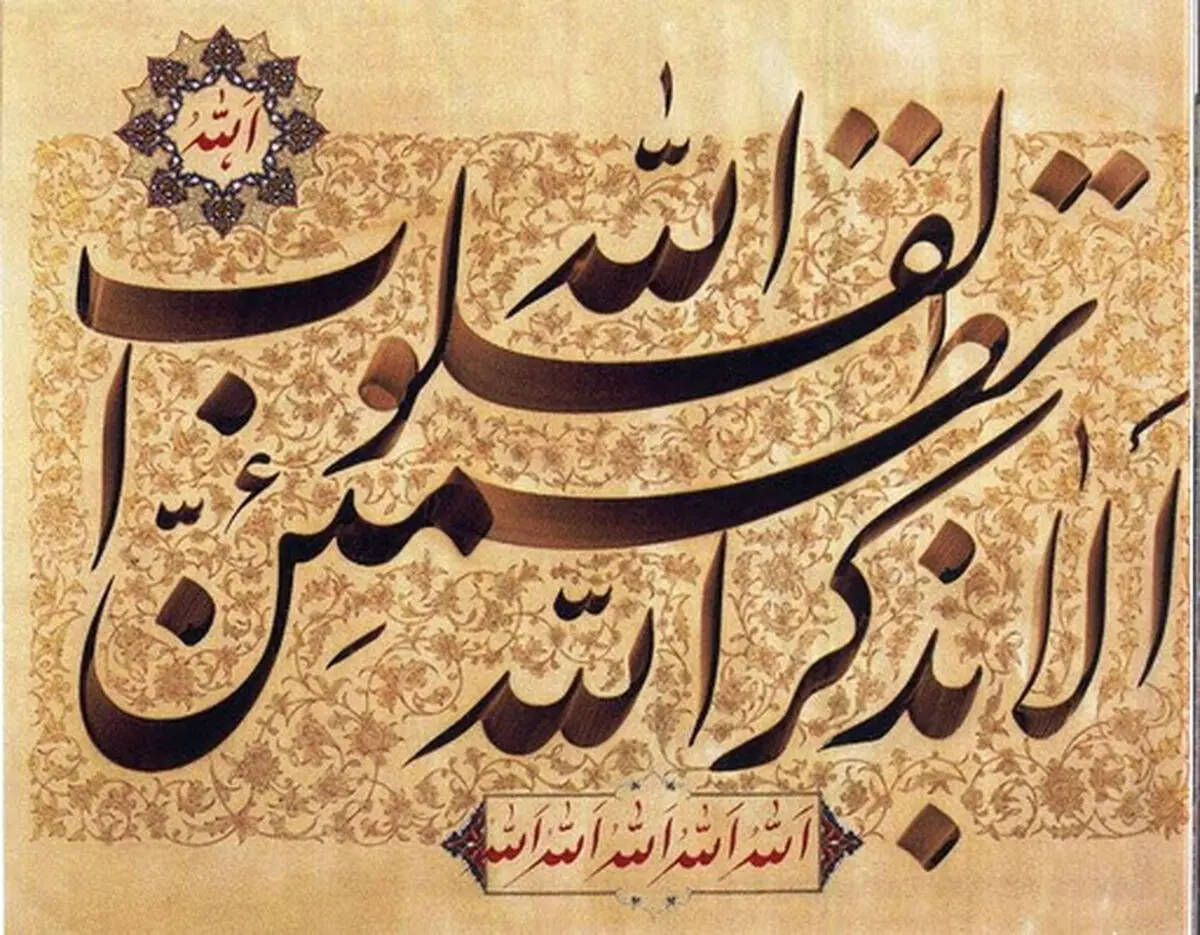 الله
الله
الا بذكر الله تطمئنّ القلوب
الله الله الله الله الله